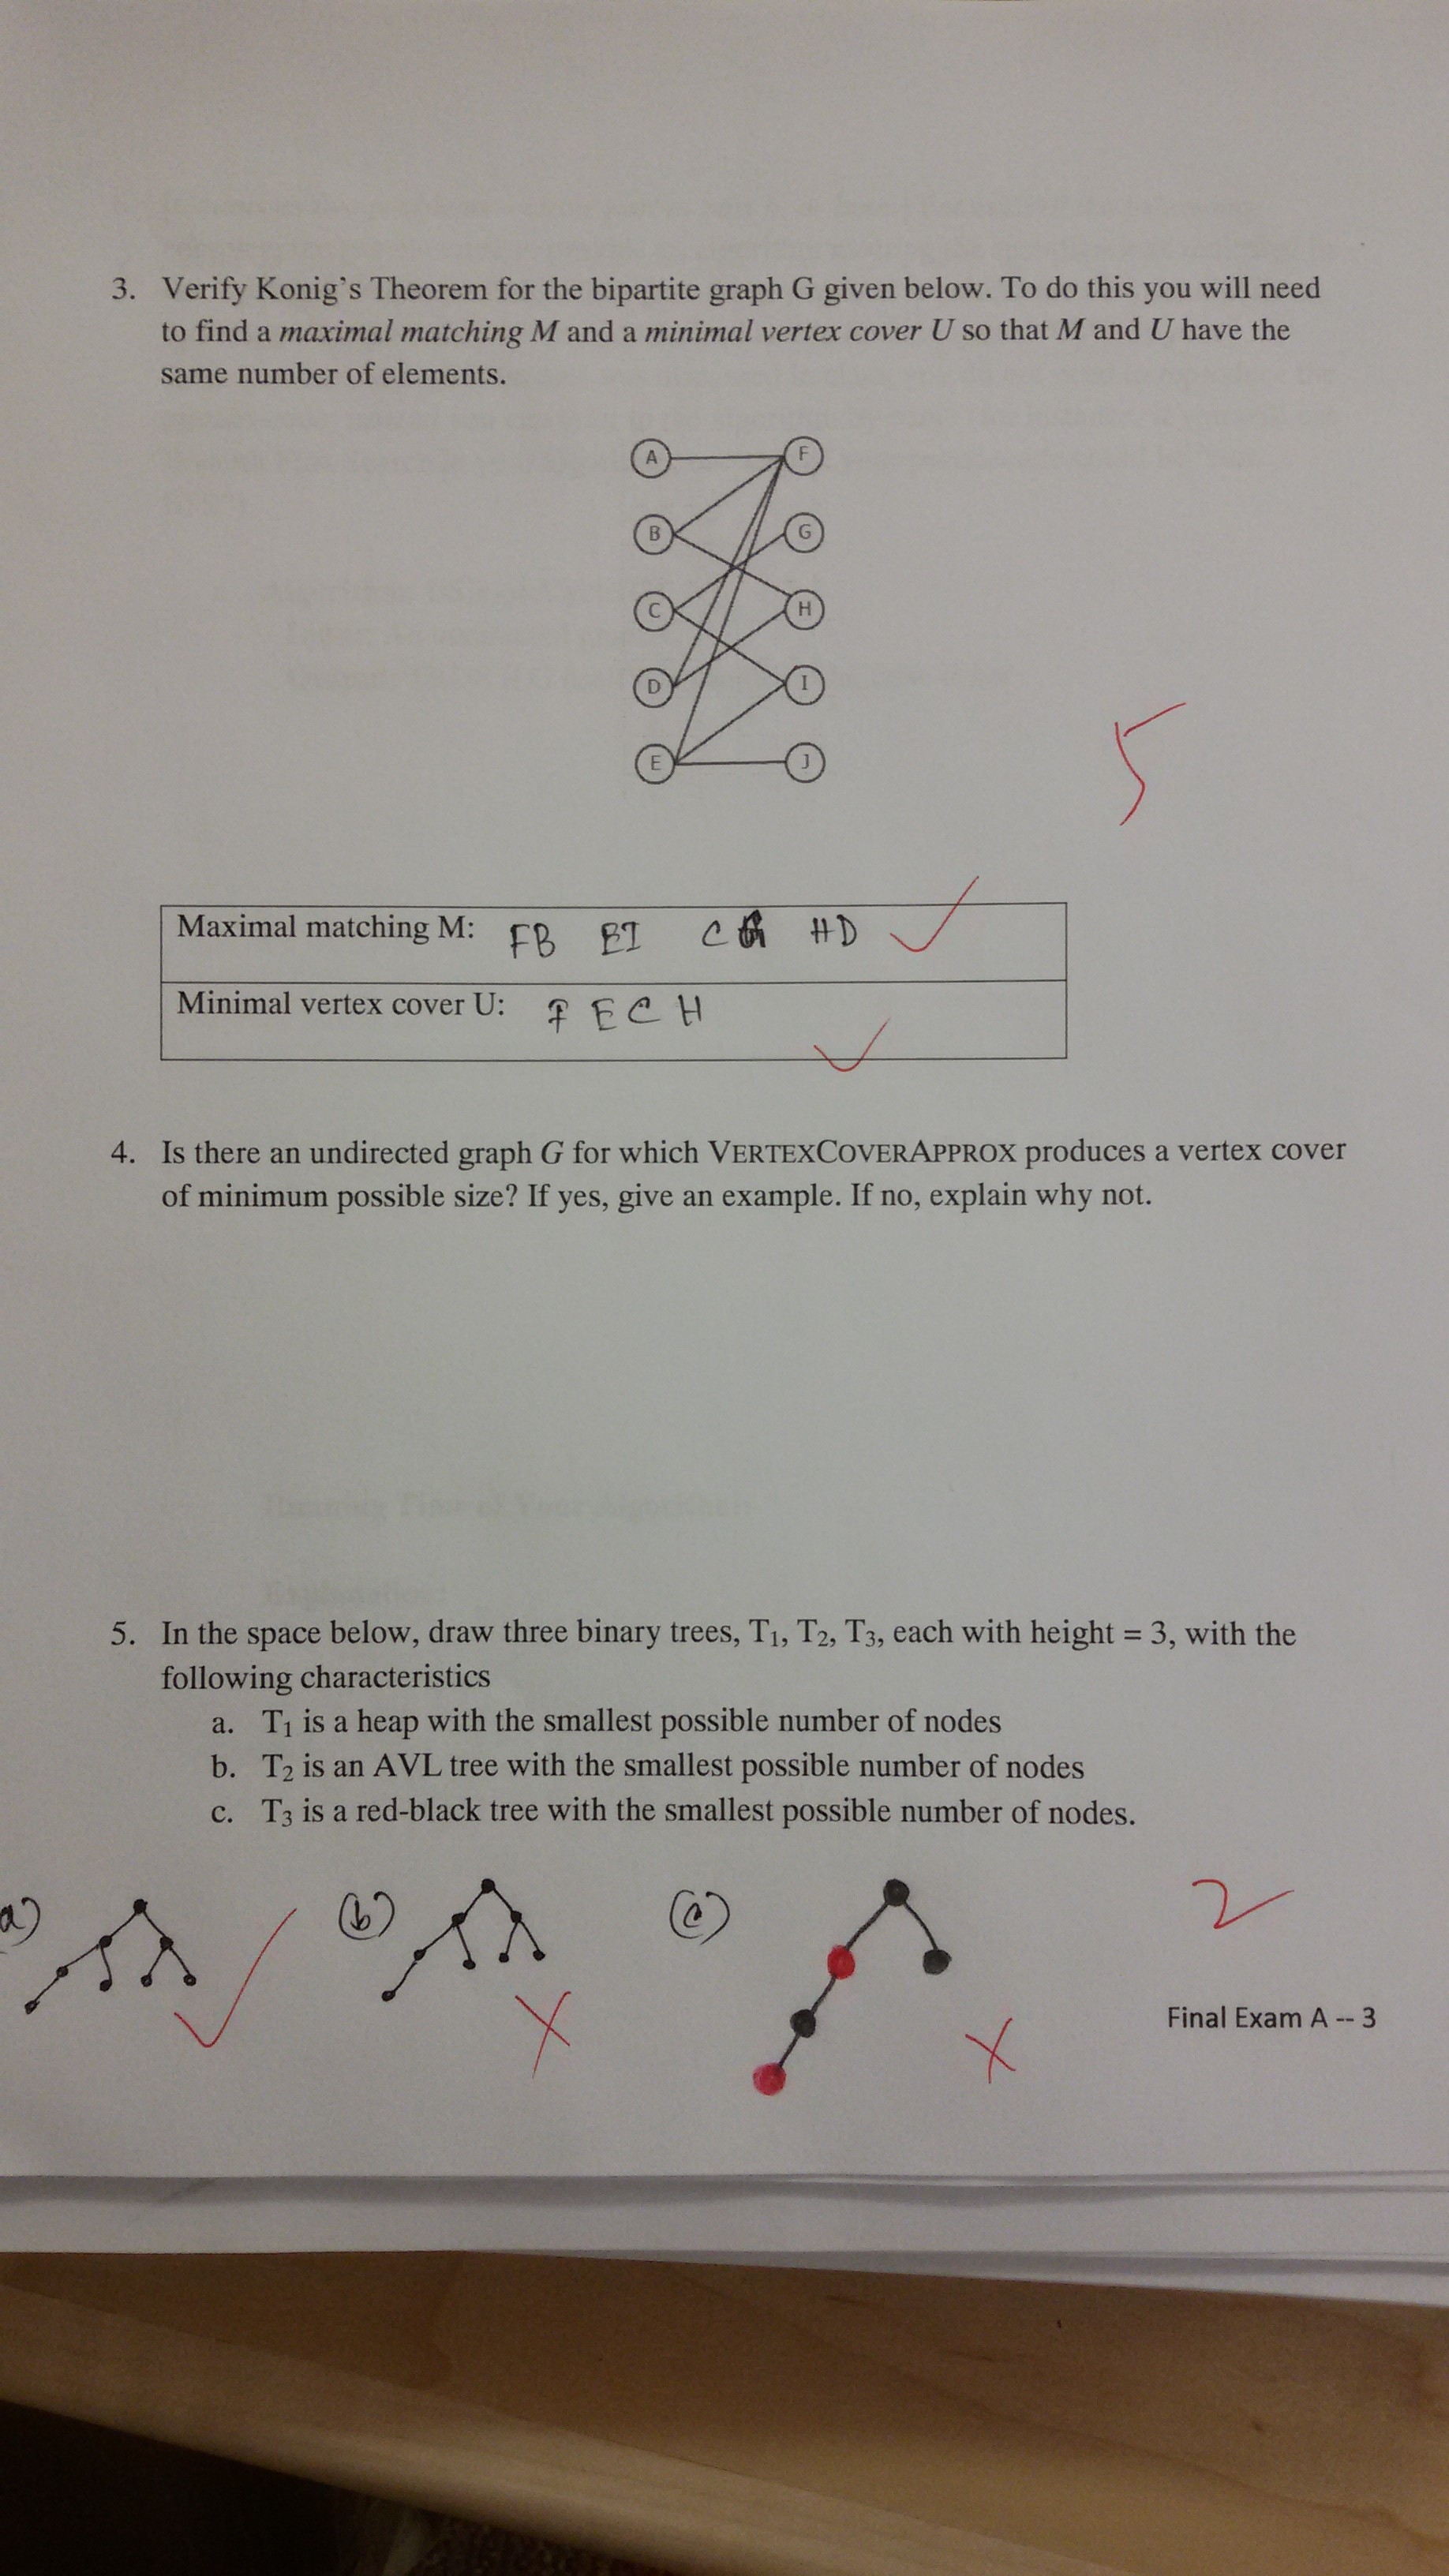 3. Verify Konig's Theorem for the bipartite graph G given below. To do this you will need
to find a maximal matching M and a minimal vertex cover U so that M and U have the
same number of elements.
A F
B G
C H
D I
E J
5
Maximal matching M: FB EI CG HD
Minimal vertex cover U: F E C H
4. Is there an undirected graph G for which VERTEXCOVERAPPROX produces a vertex cover
of minimum possible size? If yes, give an example. If no, explain why not.
Running Time of Your Algorithm:
Explanation:
5. In the space below, draw three binary trees, T1, T2, T3, each with height = 3, with the
following characteristics
a. T1 is a heap with the smallest possible number of nodes
b. T2 is an AVL tree with the smallest possible number of nodes
c. T3 is a red-black tree with the smallest possible number of nodes.
a) (b) (c) 2
Final Exam A -- 3